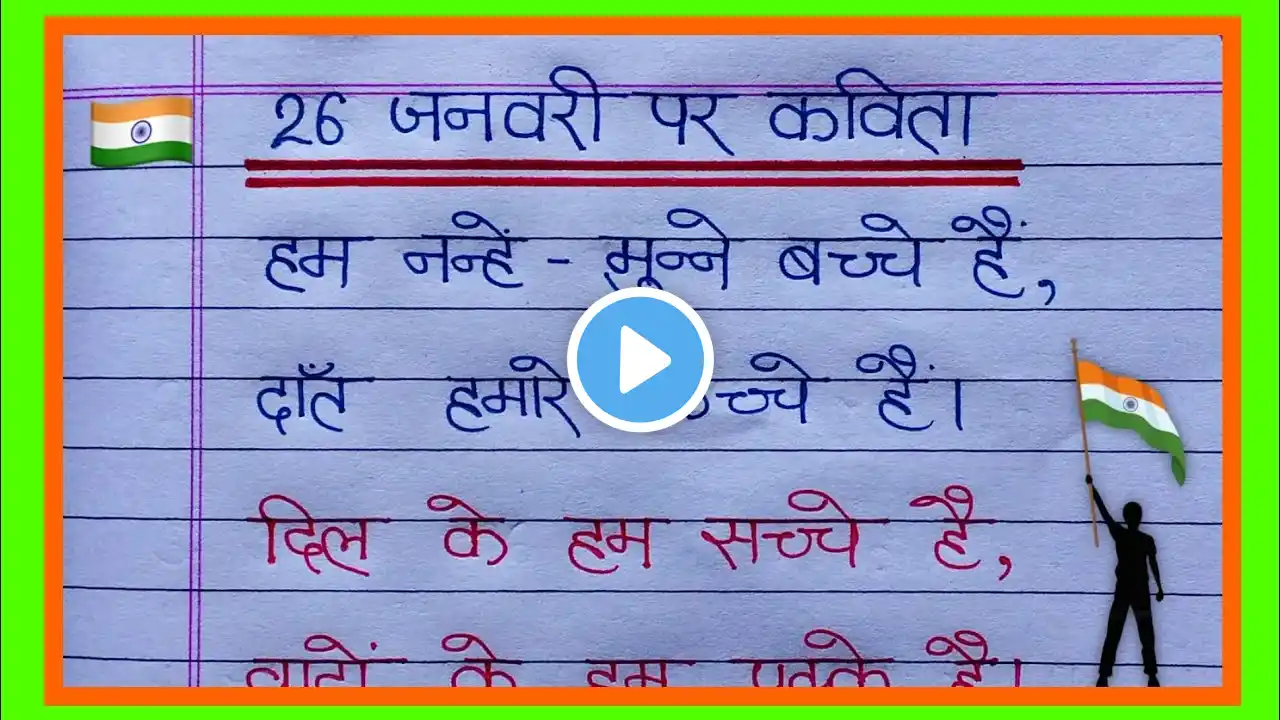 26 जनवरी पर कविता
हम नन्हें - मून्ने बच्चे हैं,
दाँत हमारे हैं।
दिल के हम सच्चे है,
के हम पक्के है।